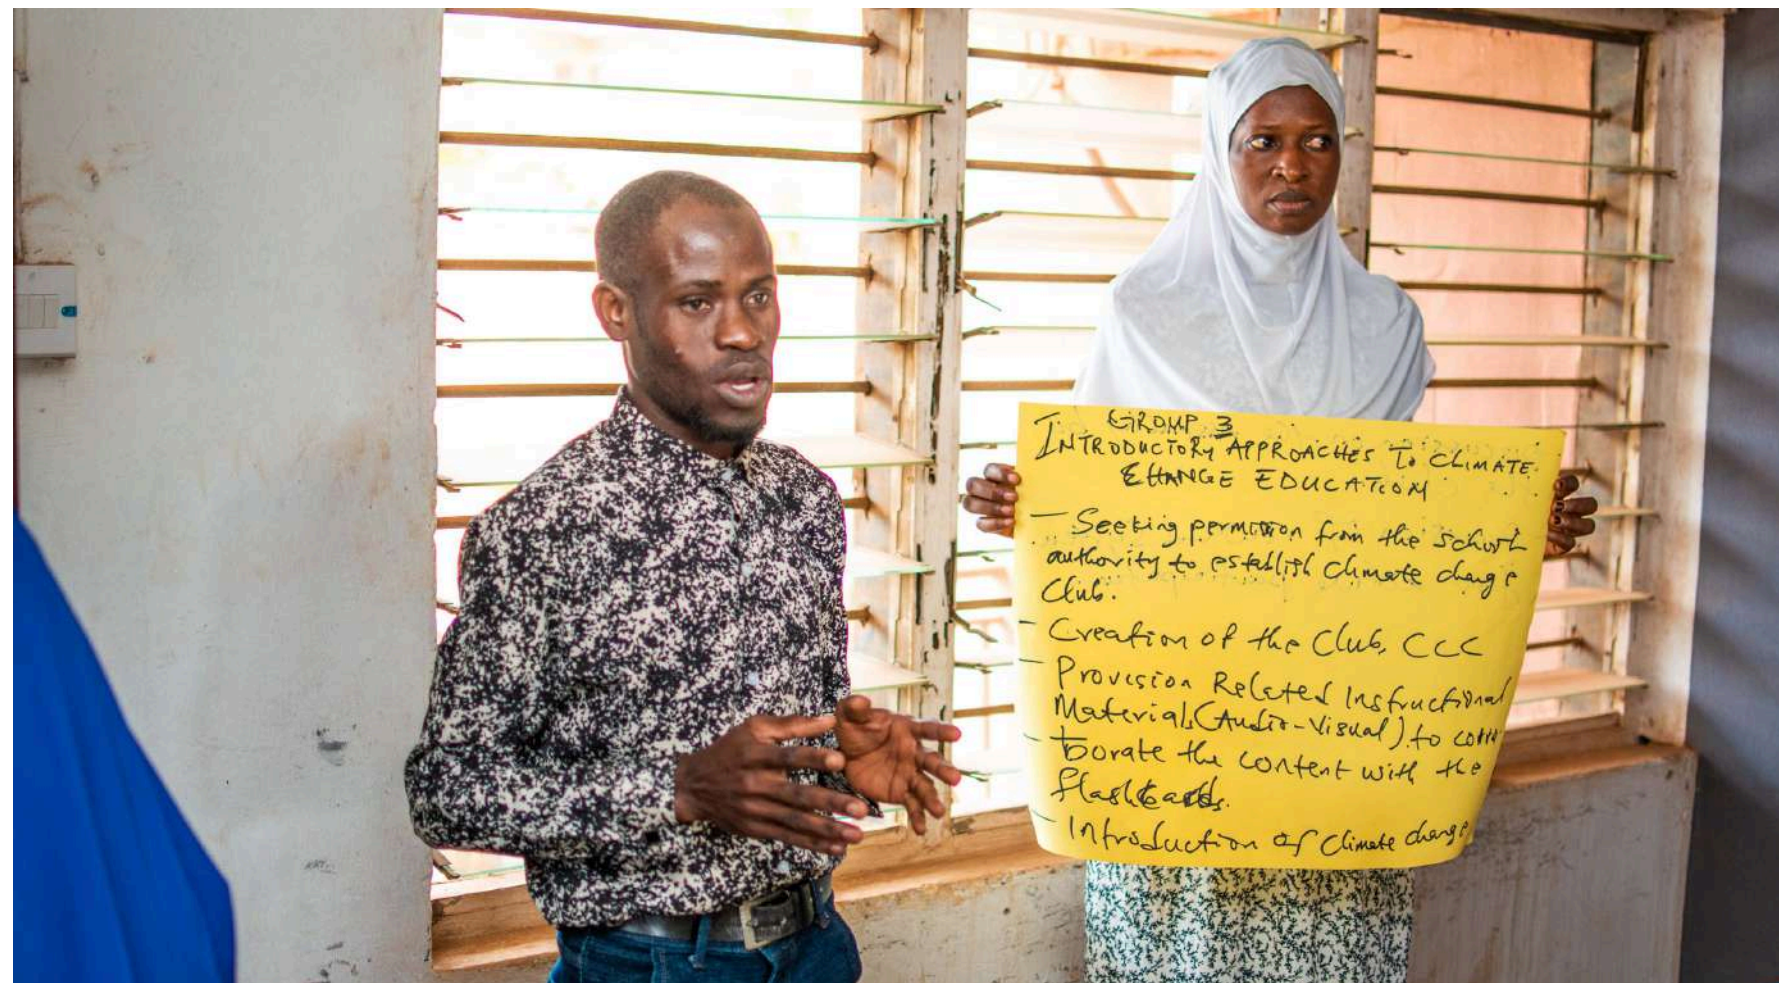 GROUP 3
INTRODUCTORY APPROACHES TO CLIMATE
CHANGE EDUCATION
- Seeking permission from the school
authority to establish climate change
Club.
- Creation of the Club, CCC
- Provision Related Instructional
Material, (Audio-Visual) to corro
- borate the content with the
flashcards.
- Introduction of Climate change